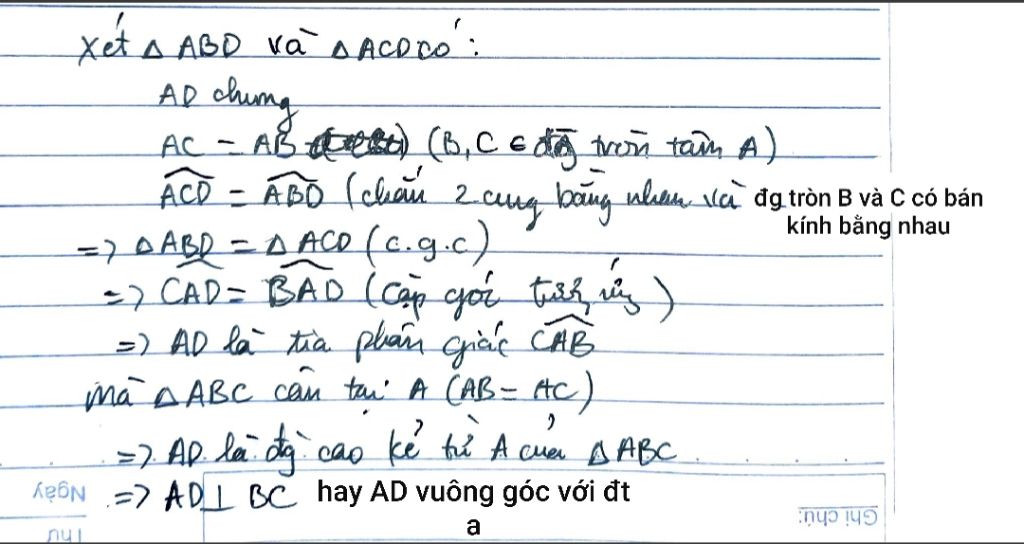 Xét △ ABD và △ ACD có :
AD chung
AC = AB (B, C ∈ đg tròn tâm A)
ACD = ABD (chắn 2 cung bằng nhau và đg tròn B và C có bán
kính bằng nhau
=> △ ABD = △ ACD (c.g.c)
=> CAD = BAD (cặp góc ứng)
=> AD là tia phân giác CAB
mà △ ABC cân tại A (AB = AC)
=> AD là đg cao kẻ từ A của △ ABC
=> AD ⊥ BC hay AD vuông góc với đt
a
Ngày
Thứ
Ghi chú: